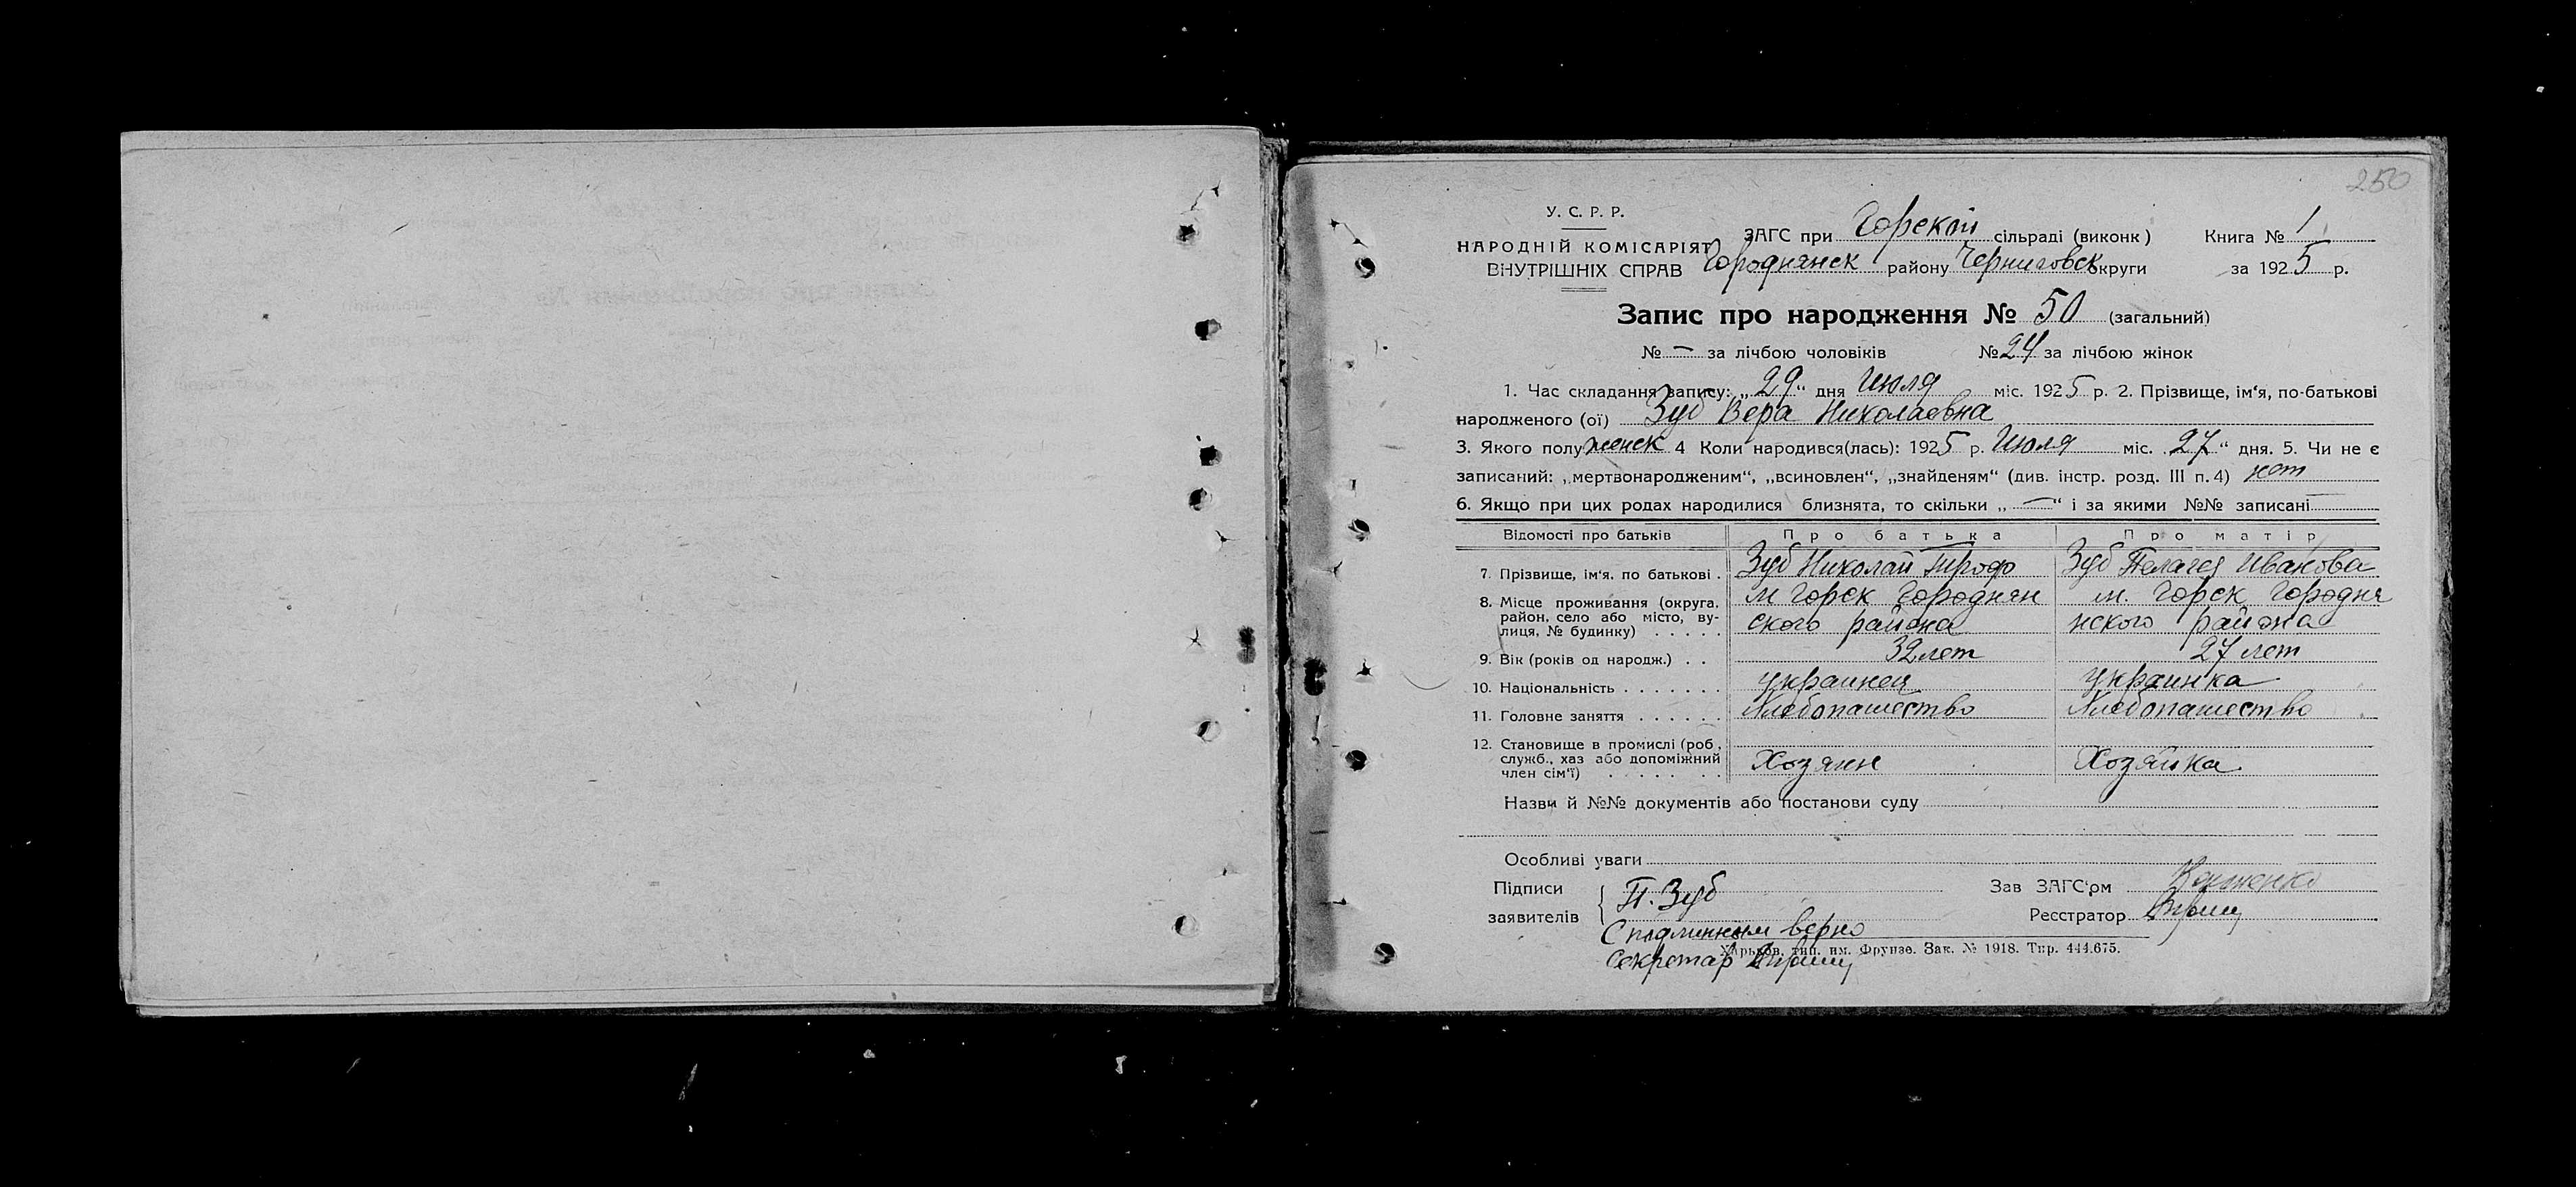 250
У. С. Р. Р.
НАРОДНІЙ КОМІСАРІЯТ
ВНУТРІШНІХ СПРАВ
ЗАГС при Горской сільраді (виконк)
Городнянск району Черниговск округи
Книга № 1
за 1925 р.
Запис про народження № 50 (загальний)
№ — за лічбою чоловіків № 24 за лічбою жінок
1. Час складання запису: „29“ дня Июля міс. 1925 р. 2. Прізвище, ім'я, по-батькові
народженого (ої) Зуб Вера Николаевна
3. Якого полу женск 4 Коли народився(лась): 1925 р. Июля міс. 27“ дня. 5. Чи не є
записаний: „мертвонародженим“, „всиновлен“, „знайденям“ (див. інстр. розд. III п. 4) нет
6. Якщо при цих родах народилися близнята, то скільки „—“ і за якими №№ записані
Відомості про батьків Про батька Про матір
7. Прізвище, ім'я, по батькові . Зуб Николай Трофо Зуб Пелагея Иванова
8. Місце проживання (округа, м Горск Городнян м. Горск Городня
район, село або місто, ву- ского района нского района
лиця, № будинку) . . . . .
9. Вік (років од народж.) . . 32 лет 27 лет
10. Національність . . . . . . . украинец украинка
11. Головне заняття . . . . . . Хлебопашество Хлебопашество
12. Становище в промислі (роб.,
служб., хаз або допоміжний Хозяин Хозяйка
член сім'ї) . . . . . . .
Назви й №№ документів або постанови суду
Особливі уваги
Підписи
заявителів
П. Зуб
Зав ЗАГС'ом
Реєстратор
С подлинным верно
Харьков, тип. им. Фрунзе. Зак. № 1918. Тир. 444.675.
Секретар